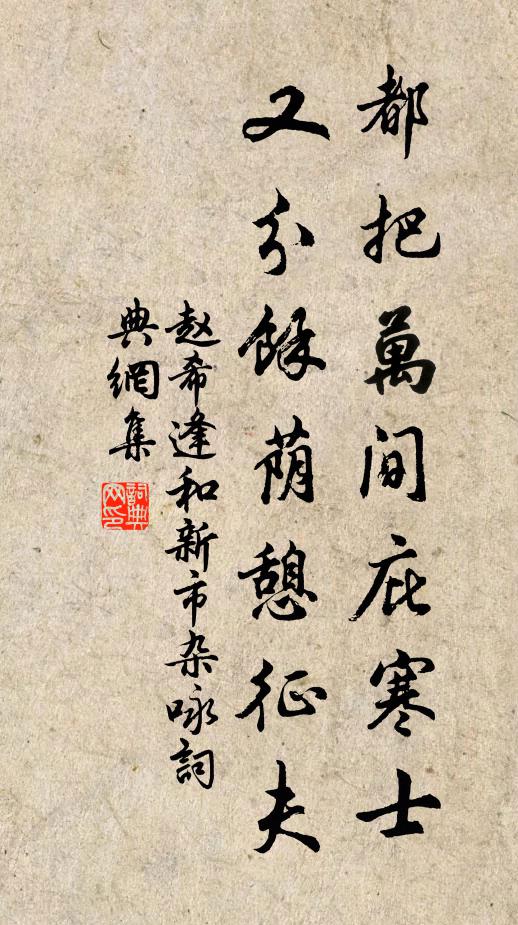 都把萬間庇寒士
又分餘蔭憩征夫
赵希逢和新市杂咏詞
典網集
詞典网印